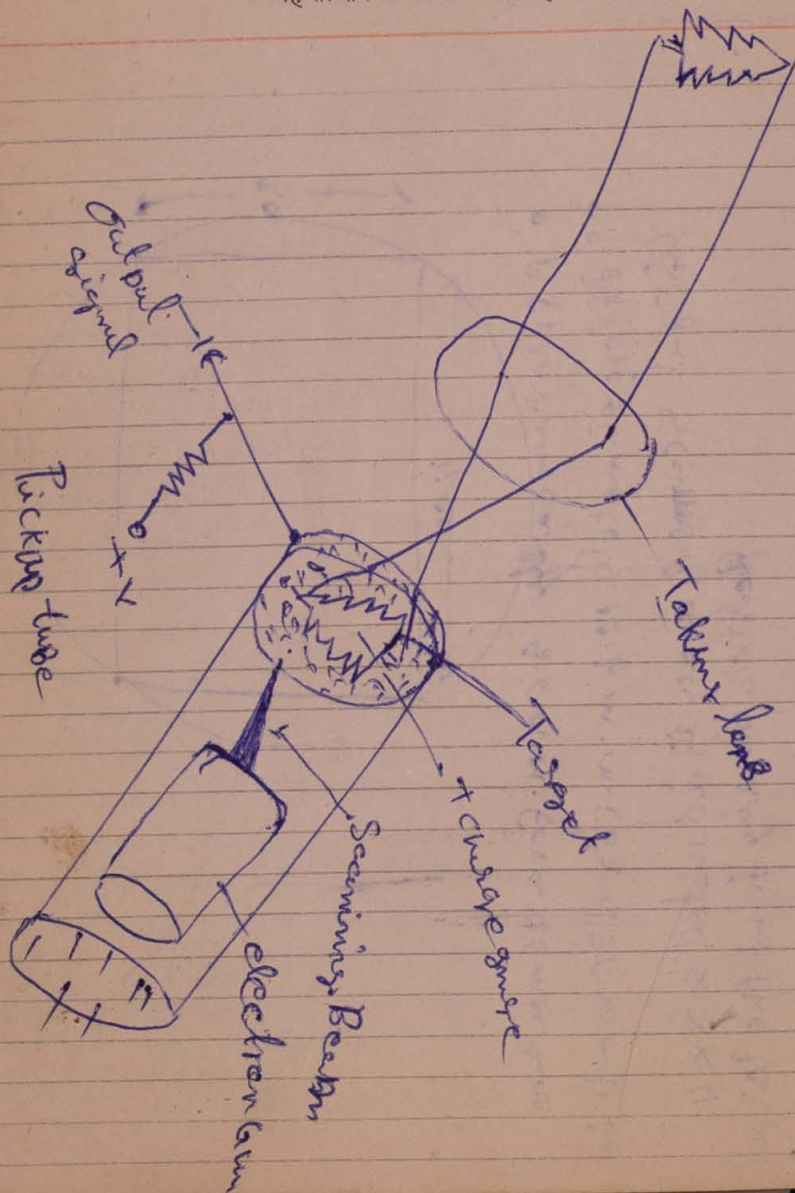 Taking lens
Target
+ charge
Scanning Beam
electron Gun
Output
signal
+V
Pickup tube